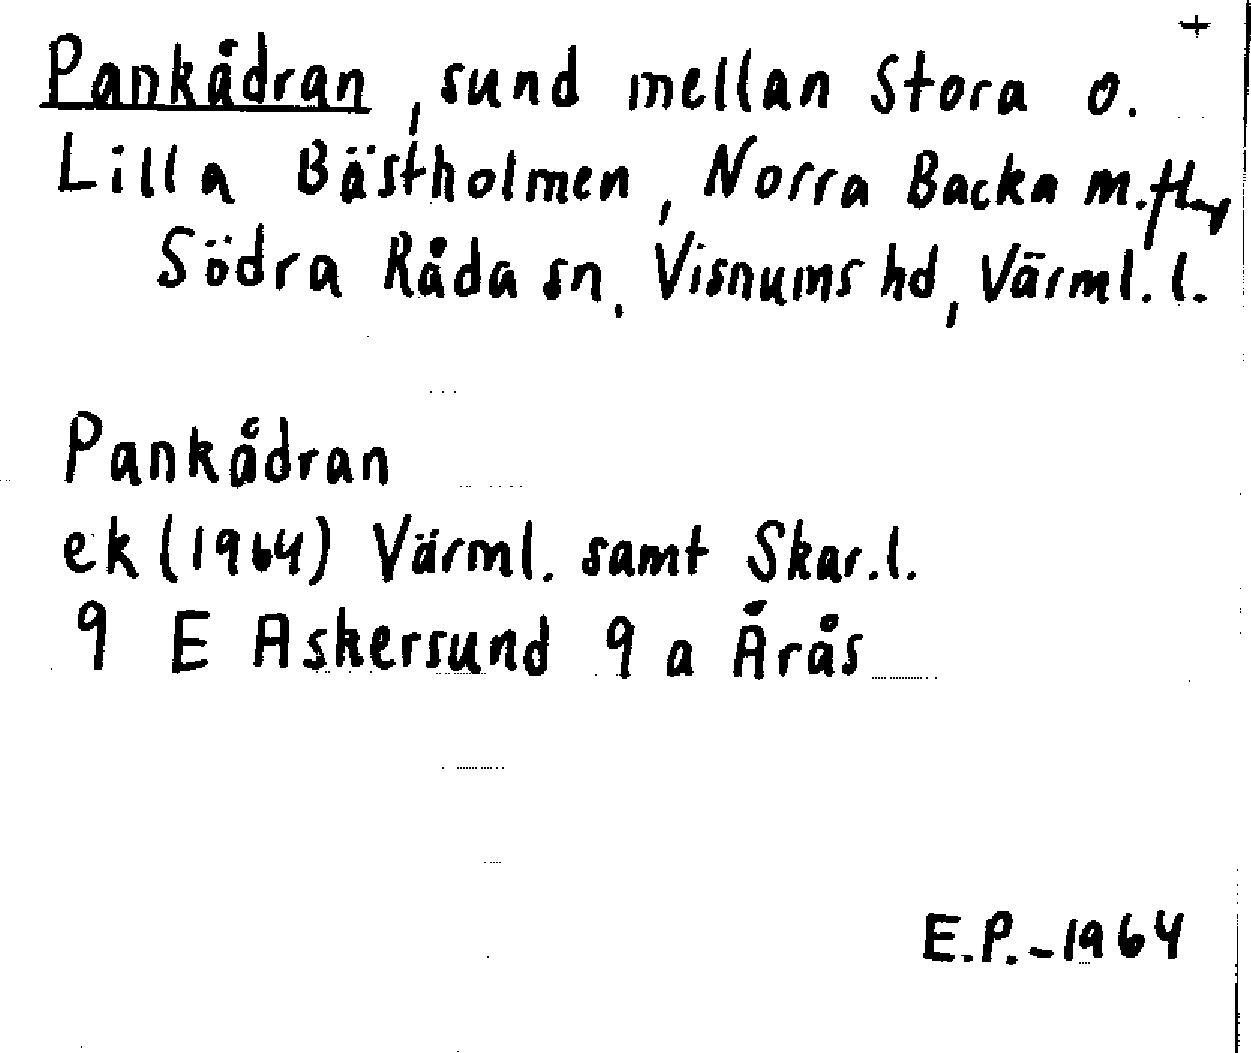 +
Pankådran, sund mellan Stora o.
Lilla Bästholmen, Norra Backa m.fl.,
Södra Råda sn, Visnums hd, Värml. l.
Pankådran
ek (1964) Värml. samt Skar.l.
9 E Askersund 9 a Årås
E.P.-1964